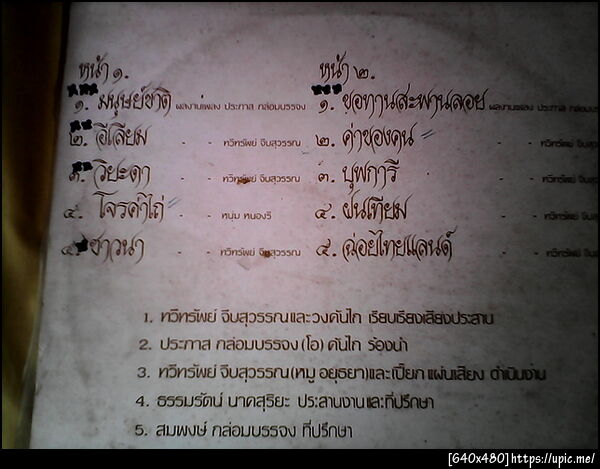 หน้า ๑. หน้า ๒.
๑. มนุษย์ชาติ ผลงานเพลง ประภาส กล่อมบรรจง ๑. ขอทานสะพานลอย ผลงานเพลง ประภาส กล่อมบรรจง
๒. อีเลียม - - ทวีทรัพย์ จีบสุวรรณ ๒. ค่าของคน - ทวีทรัพย์ จีบสุ
๓. วิยะดา - - ทวีทรัพย์ จีบสุวรรณ ๓. บุพการี - - ทวีทรัพย์ จีบสุ
๔. โจรค้ำไถ่ - - หนุ่ม หนองรี ๔. ฝนเทียม - - ทวีทรัพย์ จีบสุ
๕. ชาวนา - - ทวีทรัพย์ จีบสุวรรณ ๕. ฉ่อยไทยแลนด์ - ทวีทรัพย์ จีบสุ
1. ทวีทรัพย์ จีบสุวรรณและวงคันไถ เรียบเรียงเสียงประสาน
2. ประภาส กล่อมบรรจง (โอ) คันไถ ร้องนำ
3. ทวีทรัพย์ จีบสุวรรณ (หมู อยุธยา) และเปี๊ยก แผ่นเสียง ดำเนินงาน
4. ธรรมรัตน์ นาคสุริยะ ประสานงานและที่ปรึกษา
5. สมพงษ์ กล่อมบรรจง ที่ปรึกษา
[640x480]https://upic.me/